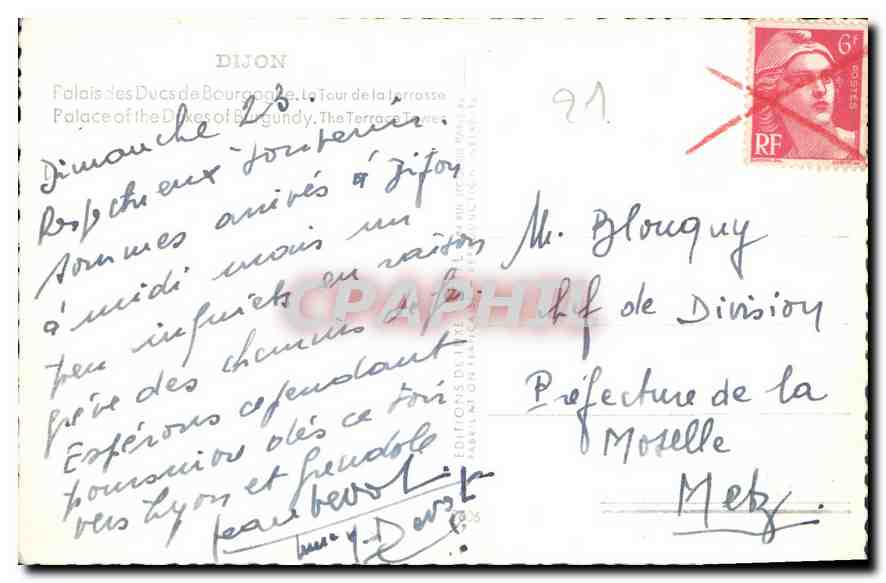 DIJON
Palais des Ducs de Bourgogne. La Tour de la Terrasse
Palace of the Dukes of Burgundy. The Terrace Tower
Dimanche 23.
Respectueux souvenir.
sommes arrivés à Dijon
à midi mais un
peu inquiets en raison
grève des chemins de fer.
Espérons cependant
poursuivre dès ce soir
vers Lyon et Grenoble
21
6F
POSTES
RF
M. Blouquy
Chef de Division
Préfecture de la
Moselle
Metz.
CPAPHIL
EDITIONS DE
FABRICATION FRANÇAISE